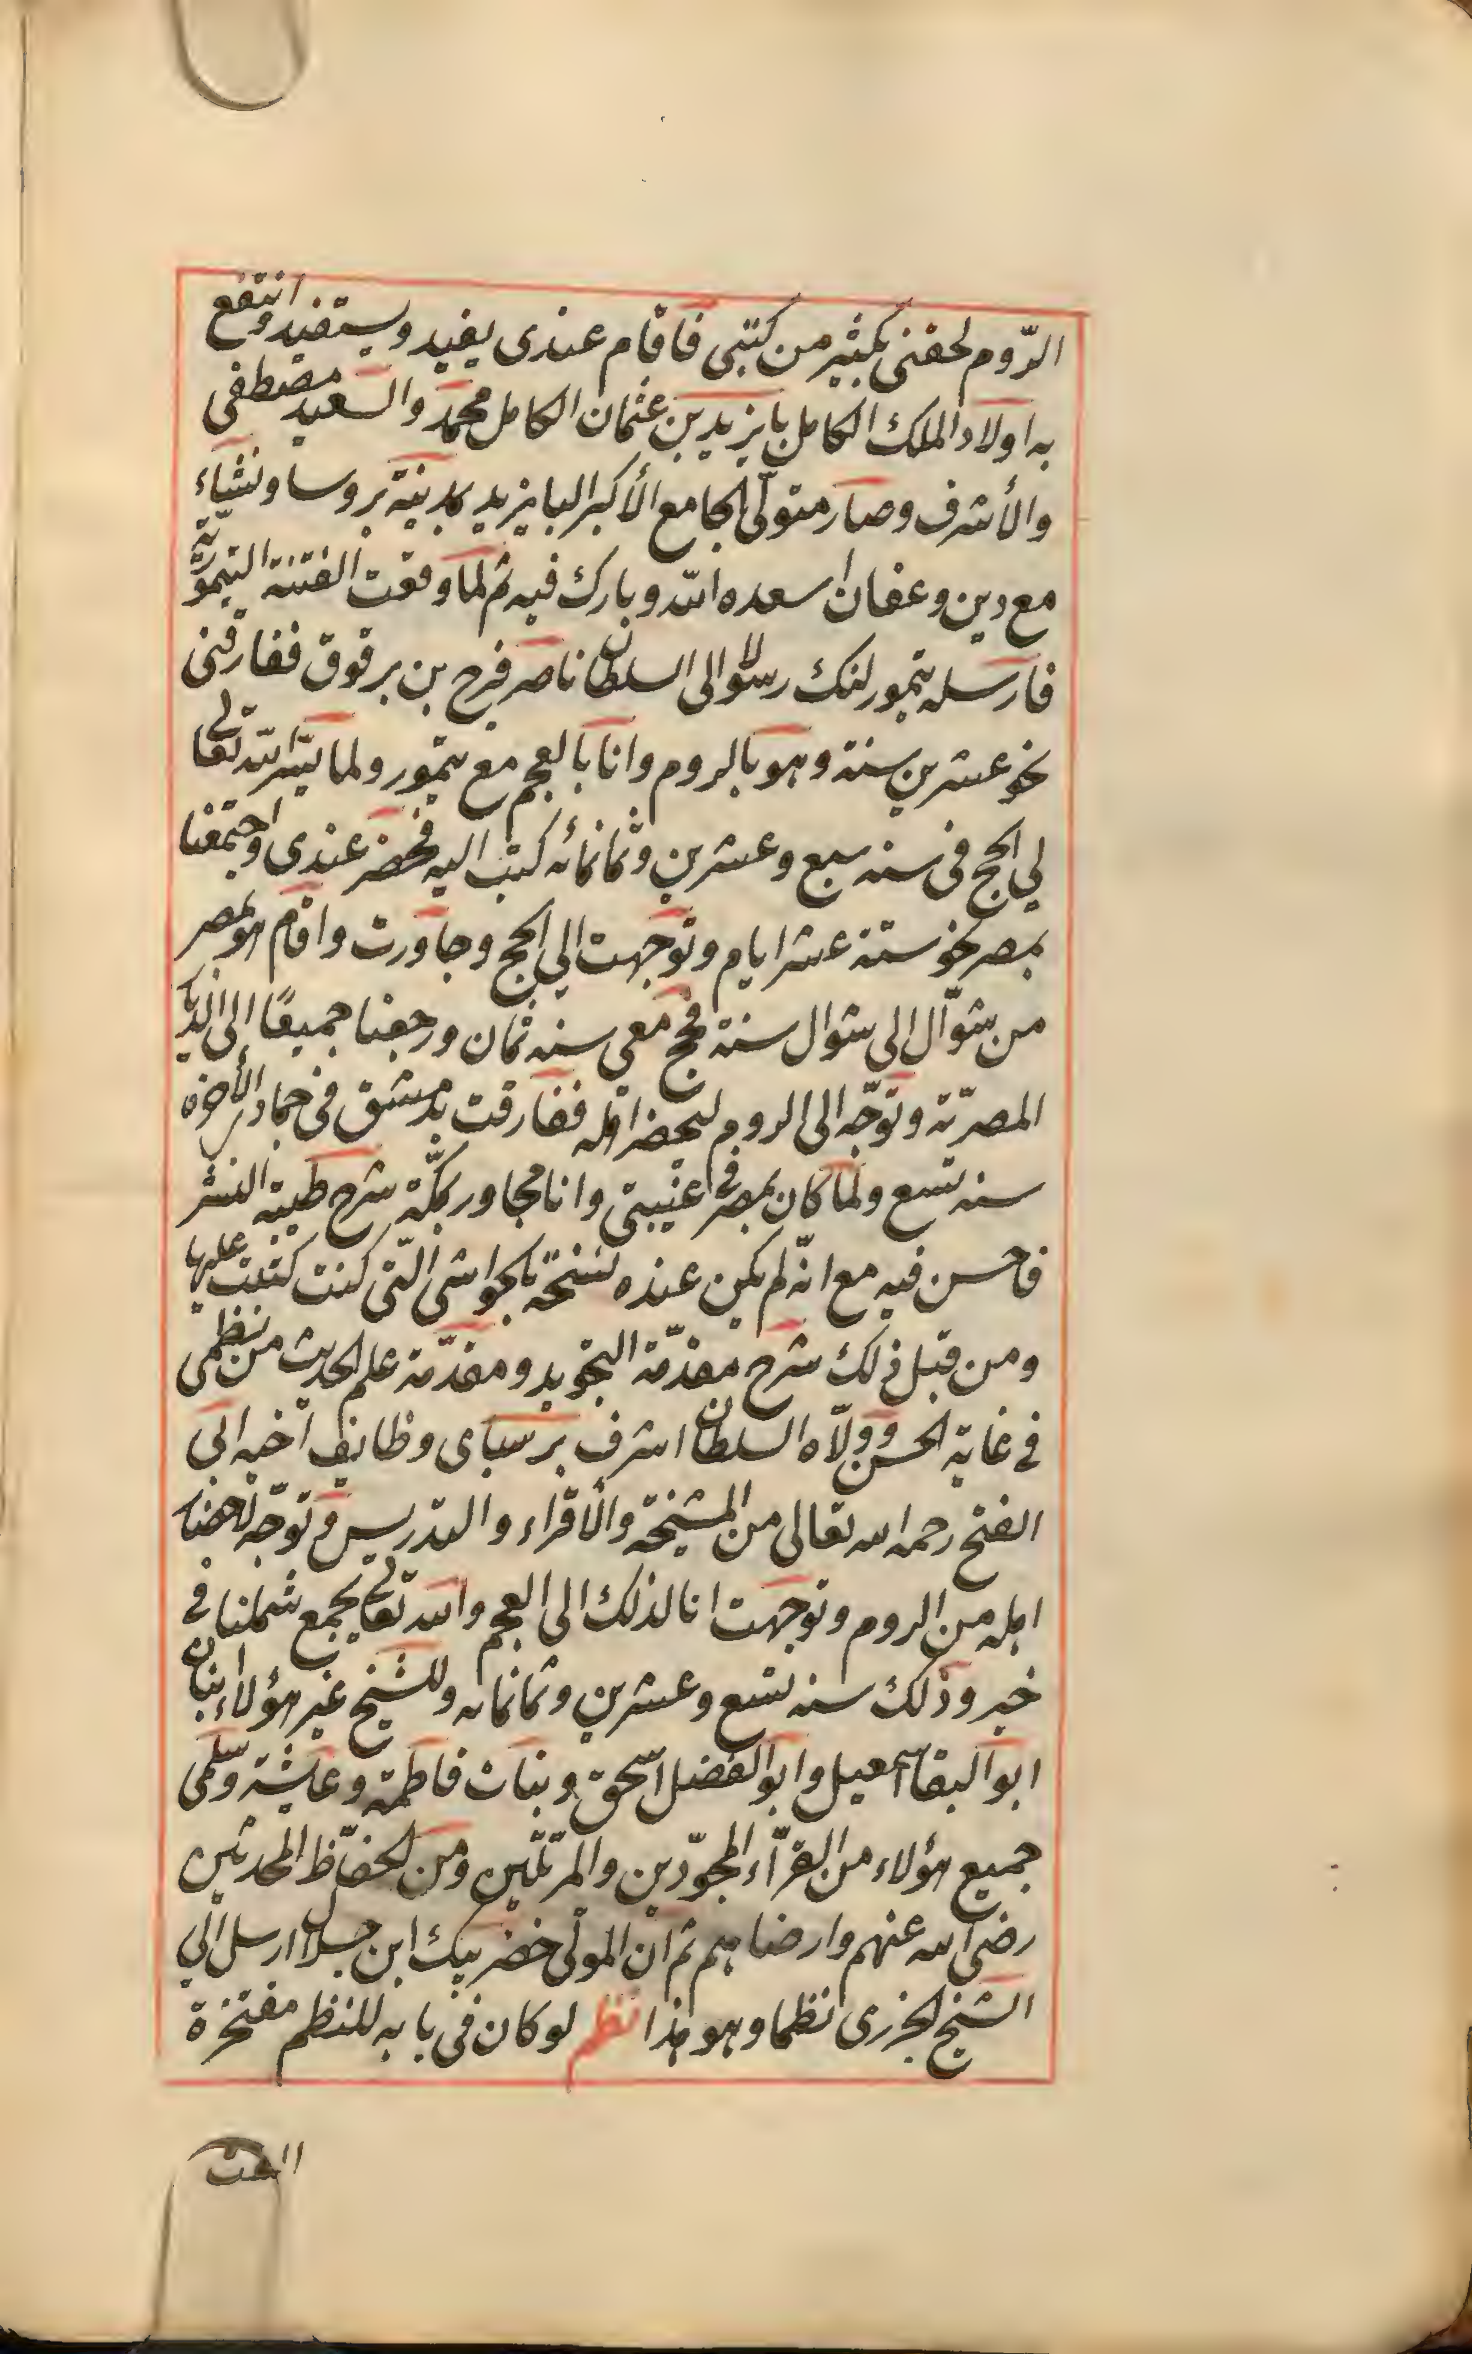 الرّوم لحقنى بكثير من كتبى فاقام عندى يفيد ويستفيد وانتفع
به اولاد الملك الكامل بايزيد بن عثمان الكامل محمّد والسعيد مصطفى
والأشرف وصار متولّى الجامع الأكبر البايزيد بمدينة بروسا ونشاء
مع دين وعفان اسعده الله وبارك فيه ثم لما وقعت الفتنة التيموّرية
فارسله تيمور لنك رسولا الى السلطان ناصر فرج بن برقوق ففارقنى
نحو عشرين سنة وهو بالروم وانا بالعجم مع تيمور ولما يسّر الله تعالى
لي الحج فى سنه سبع وعشرين وثمانمائه كتب اليه فحضر عندى واجتمعنا
بمصر نحو ستة عشر ايام وتوجهت الي الحج وجاورت واقام هو بمصر
من شوّال الى شوال سنة فحج معي سنه ثمان ورجعنا جميعًا الى الديار
المصريّة وتوجّه الى الروم ليحضر اهله ففارقت بدمشق فى جمادى الأخره
سنه تسع ولما كان بمصر فى غيبتى وانا مجاور بمكّة شرح طيبة النشر
فاحسن فيه مع انّه لم يكن عنده نسخة بالحواشى التى كنت كتبت عليها
ومن قبل ذلك شرح مقدّمة التجويد ومقدّمة علم الحديث من نظمى
فى غاية الحسن وولّاه السلطان اشرف برسباى وظايف أخيه ابى
الفتح رحمه الله تعالى من المشيخة والأقراء والتدريس وتوجّه لاحضار
اهله من الروم وتوجهت انا لذلك الى العجم والله تعالى يجمع شملنا فى
خير وذلك سنه تسع وعشرين وثمانمايه وللشيخ غير هؤلاء ابنان
ابو البقا اسمعيل وابو الفضل اسحق وبنات فاطمة وعايشة وسلمى
جميع هؤلاء من القرّاء المجوّدين والمرتلّين ومن الحفّاظ المحدثين
رضى الله عنهم وارضاهم ثم ان المولى خضر بيك ابن جلال ارسل الي
الشيخ الجزرى نظما وهو هذا نظم لو كان فى بابه للنظم مفتخرة